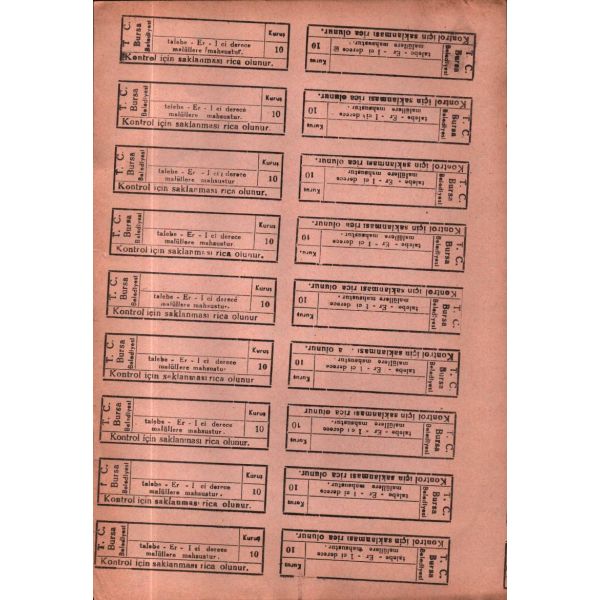 T. C.
Bursa
Belediyesi
talebe - Er - I ci derece
malüllere mahsustur.
Kuruş
10
Kontrol için saklanması rica olunur.
T. C.
Bursa
Belediyesi
talebe - Er - I ci derece
malüllere mahsustur.
Kuruş
10
Kontrol için saklanması rica olunur.
T. C.
Bursa
Belediyesi
talebe - Er - I ci derece
malüllere mahsustur
Kuruş
10
Kontrol için saklanması rica olunur.
T. C.
Bursa
Belediyesi
talebe - Er - I ci derece
malüllere mahsustur.
Kuruş
10
Kontrol için saklanması rica olunur.
T. C.
Bursa
Belediyesi
talebe - Er - I ci derece
malüllere mahsustur.
Kuruş
10
Kontrol için saklanması rica olunur.
T. C.
Bursa
Belediyesi
talebe - Er - I ci derece
malüllere mahsustur
Kuruş
10
Kontrol için saklanması rica olunur
T. C.
Bursa
Belediyesi
talebe - Er - I ci derece
malüllere mahsustur.
Kuruş
10
Kontrol için saklanması rica olunur.
T. C.
Bursa
Belediyesi
talebe - Er - I ci derece
malüllere mahsustur.
Kuruş
10
Kontrol için saklanması rica olunur.
T. C.
Bursa
Belediyesi
talebe - Er - I ci derece
malüllere mahsustur.
Kuruş
10
Kontrol için saklanması rica olunur.
T. C.
Bursa
Belediyesi
talebe - Er - I ci derece
malüllere mahsustur.
Kuruş
10
Kontrol için saklanması rica olunur.
T. C.
Bursa
Belediyesi
talebe - Er - I ci derece
malüllere mahsustur.
Kuruş
10
Kontrol için saklanması rica olunur.
T. C.
Bursa
Belediyesi
talebe - Er - I ci derece
malüllere mahsustur.
Kuruş
10
Kontrol için saklanması rica olunur.
T. C.
Bursa
Belediyesi
talebe - Er - I ci derece
malüllere mahsustur.
Kuruş
10
Kontrol için saklanması rica olunur.
T. C.
Bursa
Belediyesi
talebe - Er - I ci derece
malüllere mahsustur.
Kuruş
10
Kontrol için saklanması rica olunur.
T. C.
Bursa
Belediyesi
talebe - Er - I ci derece
malüllere mahsustur
Kuruş
10
Kontrol için saklanması rica olunur.
T. C.
Bursa
Belediyesi
talebe - Er - I ci derece
malüllere mahsustur.
Kuruş
10
Kontrol için saklanması rica olunur
T. C.
Bursa
Belediyesi
talebe - Er - I ci derece
malüllere mahsustur.
Kuruş
10
Kontrol için saklanması rica olunur.
T. C.
Bursa
Belediyesi
talebe - Er - I ci derece
malüllere mahsustur.
Kuruş
10
Kontrol için saklanması rica olunur.